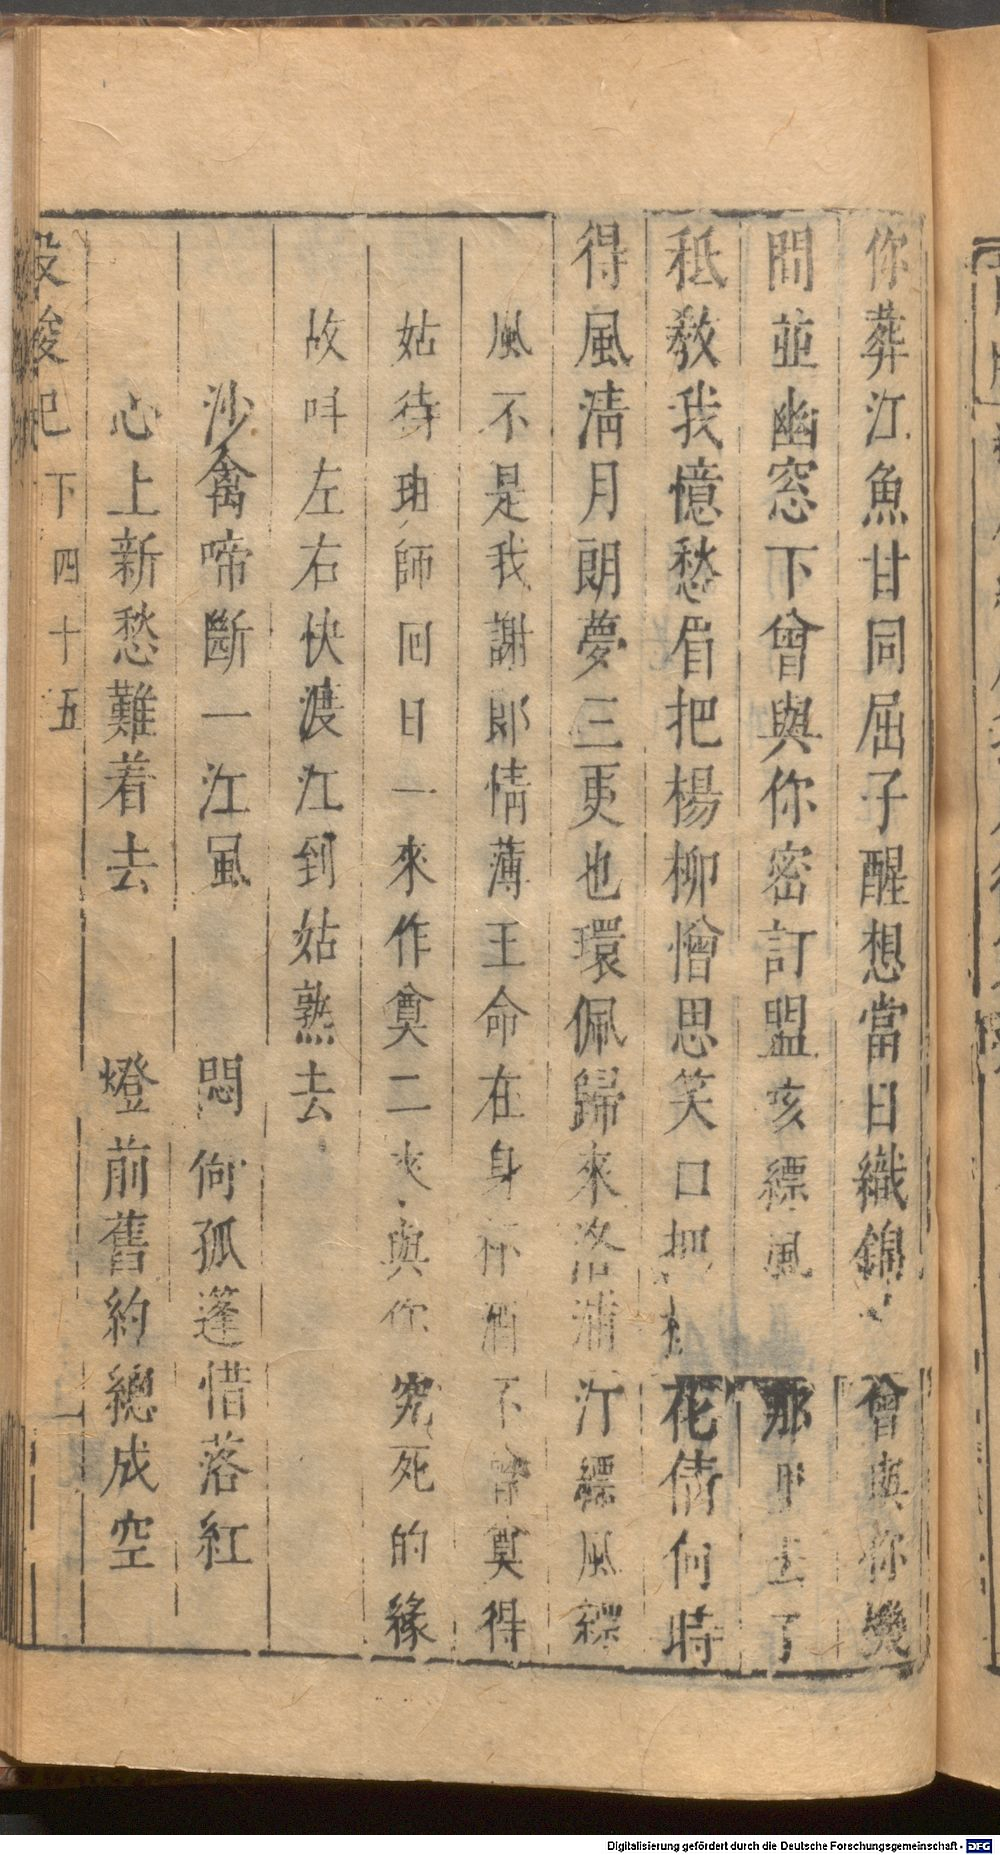 你葬江魚甘同屈子醒想當日織錦 會與你幾
問並幽窓下曾與你密訂盟亥縹風 那里去了
秖敎我憶愁眉把楊柳憎思笑口把 花倩何時
得風淸月朗夢三更也環佩歸來洛浦汀縹風縹
風不是我謝郎情薄王命在身杯酒不曾奠得
姑待班師回日一來作奠二來與你究死的緣
故叫左右快渡江到姑熟去
沙禽啼斷一江風 悶向孤蓬惜落紅
心上新愁難着去 燈前舊約總成空
投梭記 下 四十五
Digitalisierung gefördert durch die Deutsche Forschungsgemeinschaft - DFG